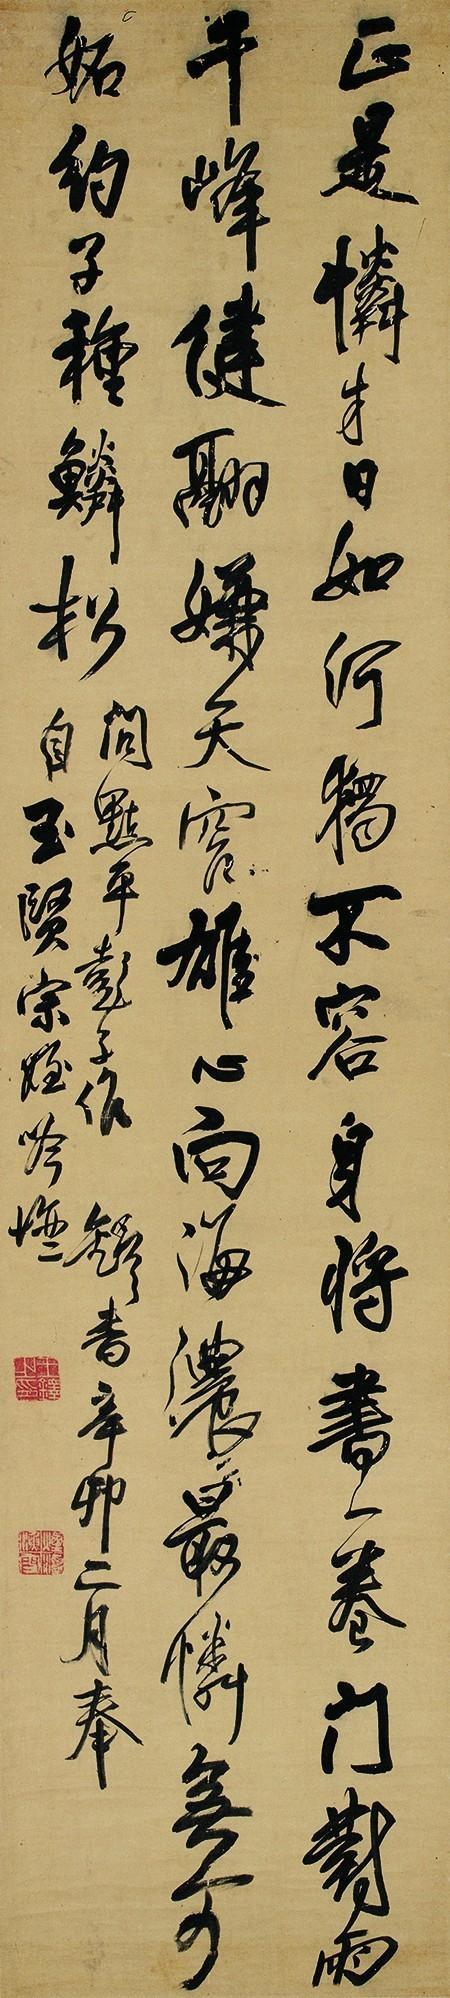 正是憐才日如何獨不容身將書一卷門對雨
千峰健翮嫌天窄雄心向海濃最憐無可
妬約子種鱗松
問點平壹子作 鐸書辛卯二月奉
自玉賢宗姪吟
王鐸之印